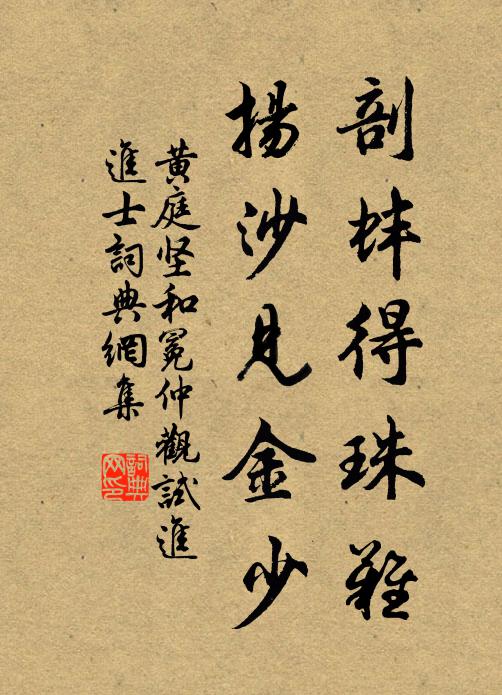 剖蚌得珠難
揚沙見金少
黃庭坚和冕仲觀試進
進士詞典網集
詞典
网印